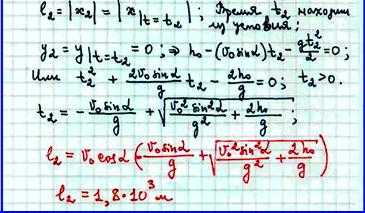 l₂ = |x₂| = |x|t=t₂| ; Время t₂ находим
из условия:
y₂ = y|t=t₂ = 0 ; ⇒ h₀ − (v₀sinα)t₂ − gt₂²/2 = 0;
Или t₂² + 2v₀sinα/g t₂ − 2h₀/g = 0; t₂ > 0.
t₂ = − v₀sinα/g + √(v₀²sin²α/g² + 2h₀/g) ;
l₂ = v₀cosα(− v₀sinα/g + √(v₀²sin²α/g² + 2h₀/g))
l₂ = 1,8·10³ м